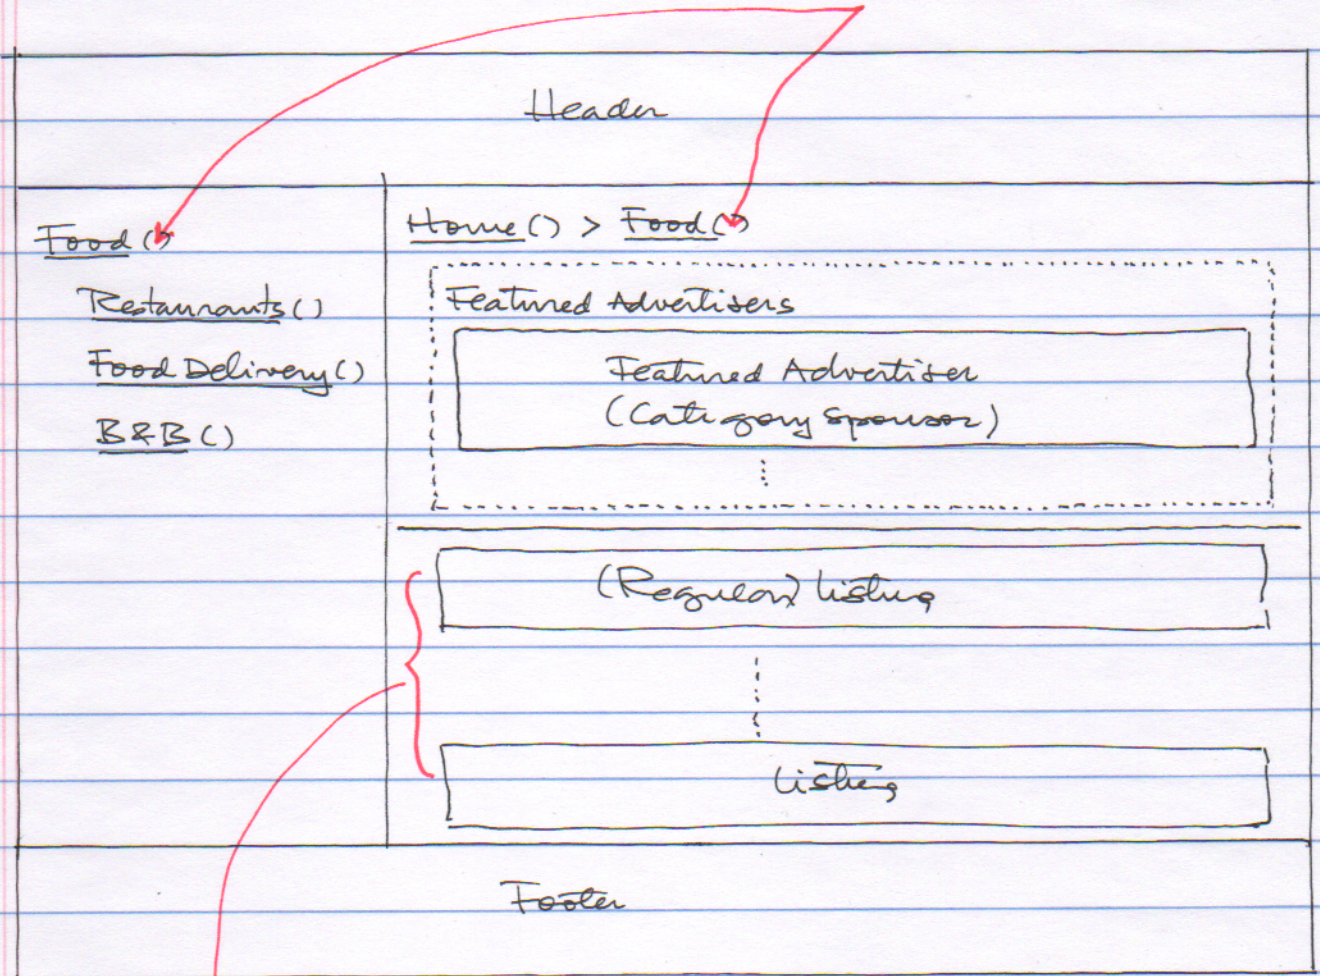 Header
Food ()
Restaurants ()
Food Delivery ()
B&B ()
Home () > Food ()
Featured Advertisers
Featured Advertiser
(Category Sponsor)
(Regular) Listing
Listing
Footer